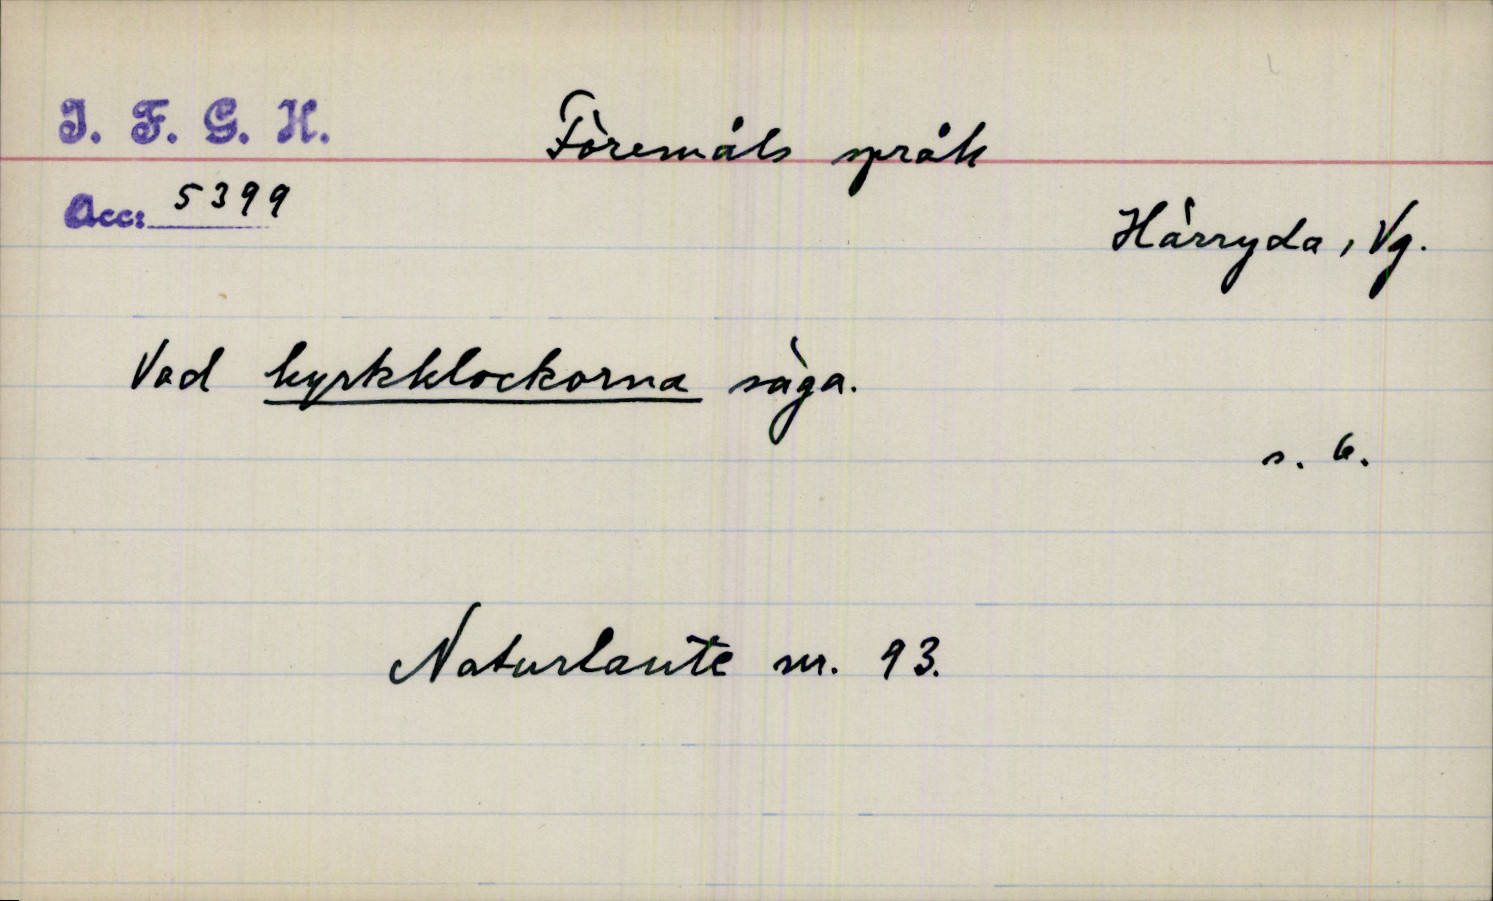 I. F. G. H.
Föremåls språk
Acc: 5399
Härryda, Vg.
Vad kyrkklockorna säga.
s. 6.
Naturlaute nr. 93.